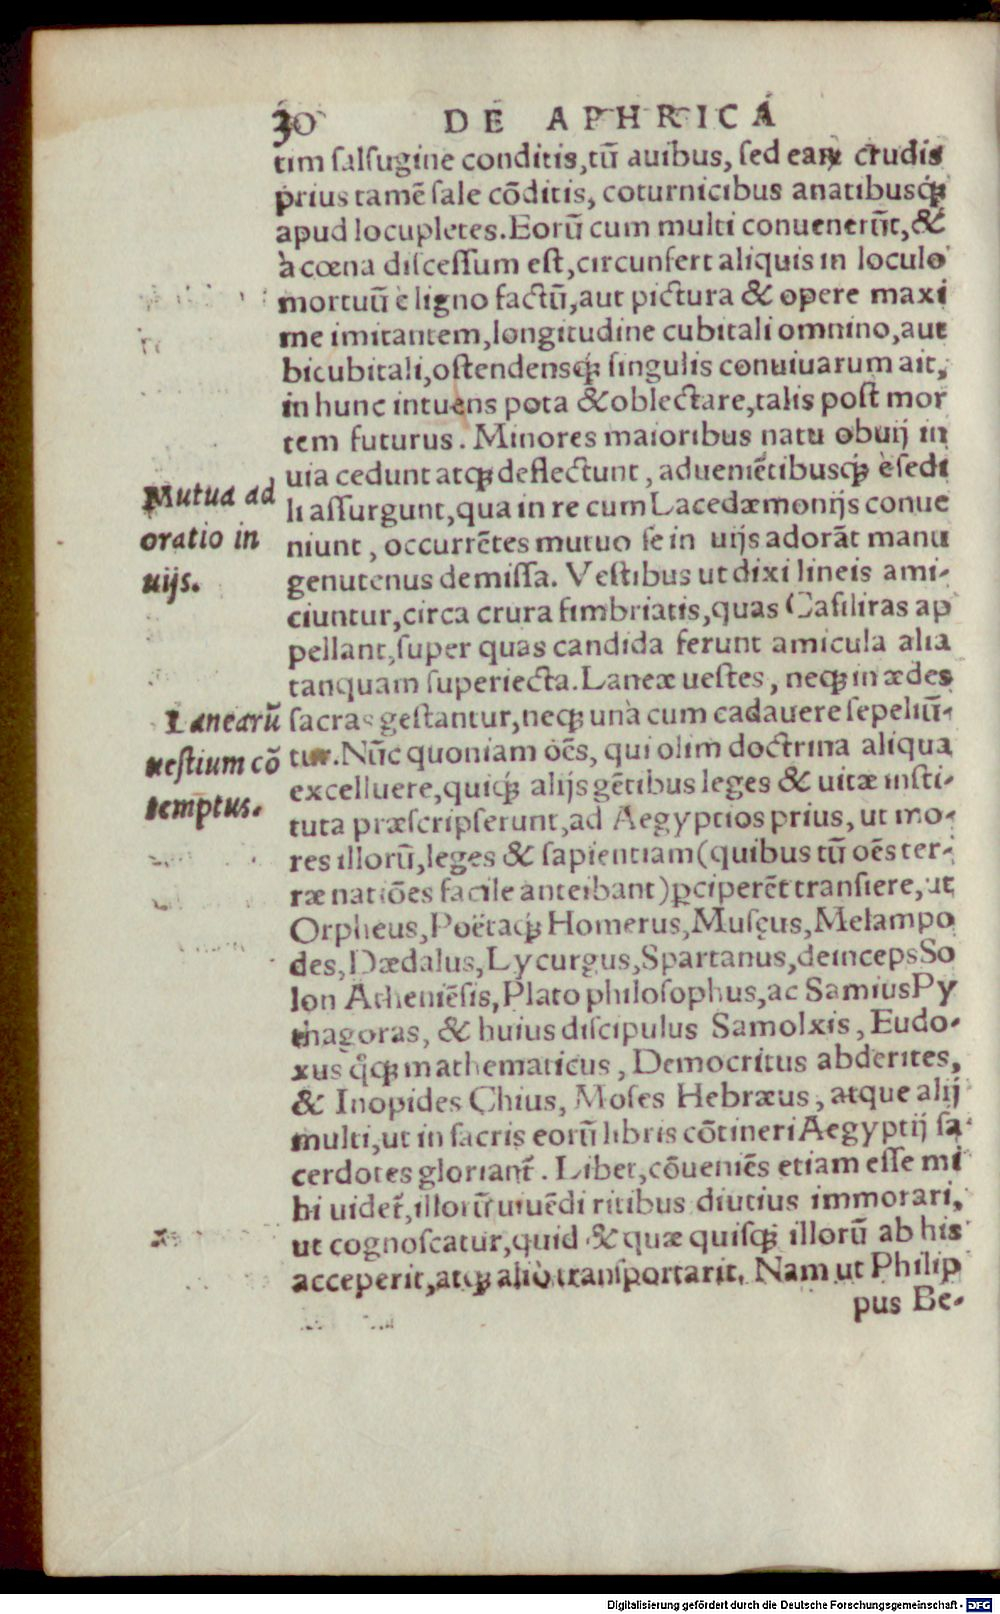 30 DE APHRICA
tim ſalſugine conditis, tũ auibus, ſed earꝝ crudis
prius tamẽ ſale cõditis, coturnicibus anatibusq́ꝫ
apud locupletes. Eorũ cum multi conuenerũt, &
à cœna diſceſſum eſt, circunfert aliquis in loculo
mortuũ è ligno factũ, aut pictura & opere maxi
me imitantem, longitudine cubitali omnino, aut
bicubitali, oſtendensq́ꝫ ſingulis conuiuarum ait,
in hunc intuens pota & oblectare, talis poſt mor
tem futurus. Minores maioribus natu obuij in
uia cedunt atqꝫ deflectunt, adueniẽtibusq́ꝫ è ſedi
li aſſurgunt, qua in re cum Lacedæmonijs conue
niunt, occurrẽtes mutuo ſe in uijs adorãt manu
genutenus demiſſa. Veſtibus ut dixi lineis ami-
ciuntur, circa crura fimbriatis, quas Caſiliras ap
pellant, ſuper quas candida ferunt amicula alia
tanquam ſuperiecta. Laneæ ueſtes, neqꝫ in ædes
ſacras geſtantur, neqꝫ unà cum cadauere ſepeliũ-
tur. Nũc quoniam oẽs, qui olim doctrina aliqua
excelluere, quiq́ꝫ alijs gẽtibus leges & uitæ inſti-
tuta præſcripſerunt, ad Aegyptios prius, ut mo-
res illorũ, leges & ſapientiam (quibus tũ oẽs ter-
ræ natiões facile anteibant) ꝑciperẽt tranſiere, ut
Orpheus, Poëtaq́ꝫ Homerus, Muſęus, Melampo
des, Dædalus, Lycurgus, Spartanus, deinceps So
lon Atheniẽſis, Plato philoſophus, ac Samius Py
thagoras, & huius diſcipulus Samolxis, Eudo-
xus q̊qꝫ mathematicus, Democritus abderites,
& Inopides Chius, Moſes Hebræus, atque alij
multi, ut in ſacris eorũ libris cõtineri Aegyptij ſa-
cerdotes gloriant̃. Libet, cõueniẽs etiam eſſe mi
hi uidet̃, illorũ uiuẽdi ritibus diutius immorari,
ut cognoſcatur, quid & quæ quiſqꝫ illorũ ab his
acceperit, atqꝫ aliò tranſportarit. Nam ut Philip
pus Be-
Mutua ad
oratio in
uijs.
Lanearũ
ueſtium cõ
temptus.
Digitalisierung gefördert durch die Deutsche Forschungsgemeinschaft - DFG